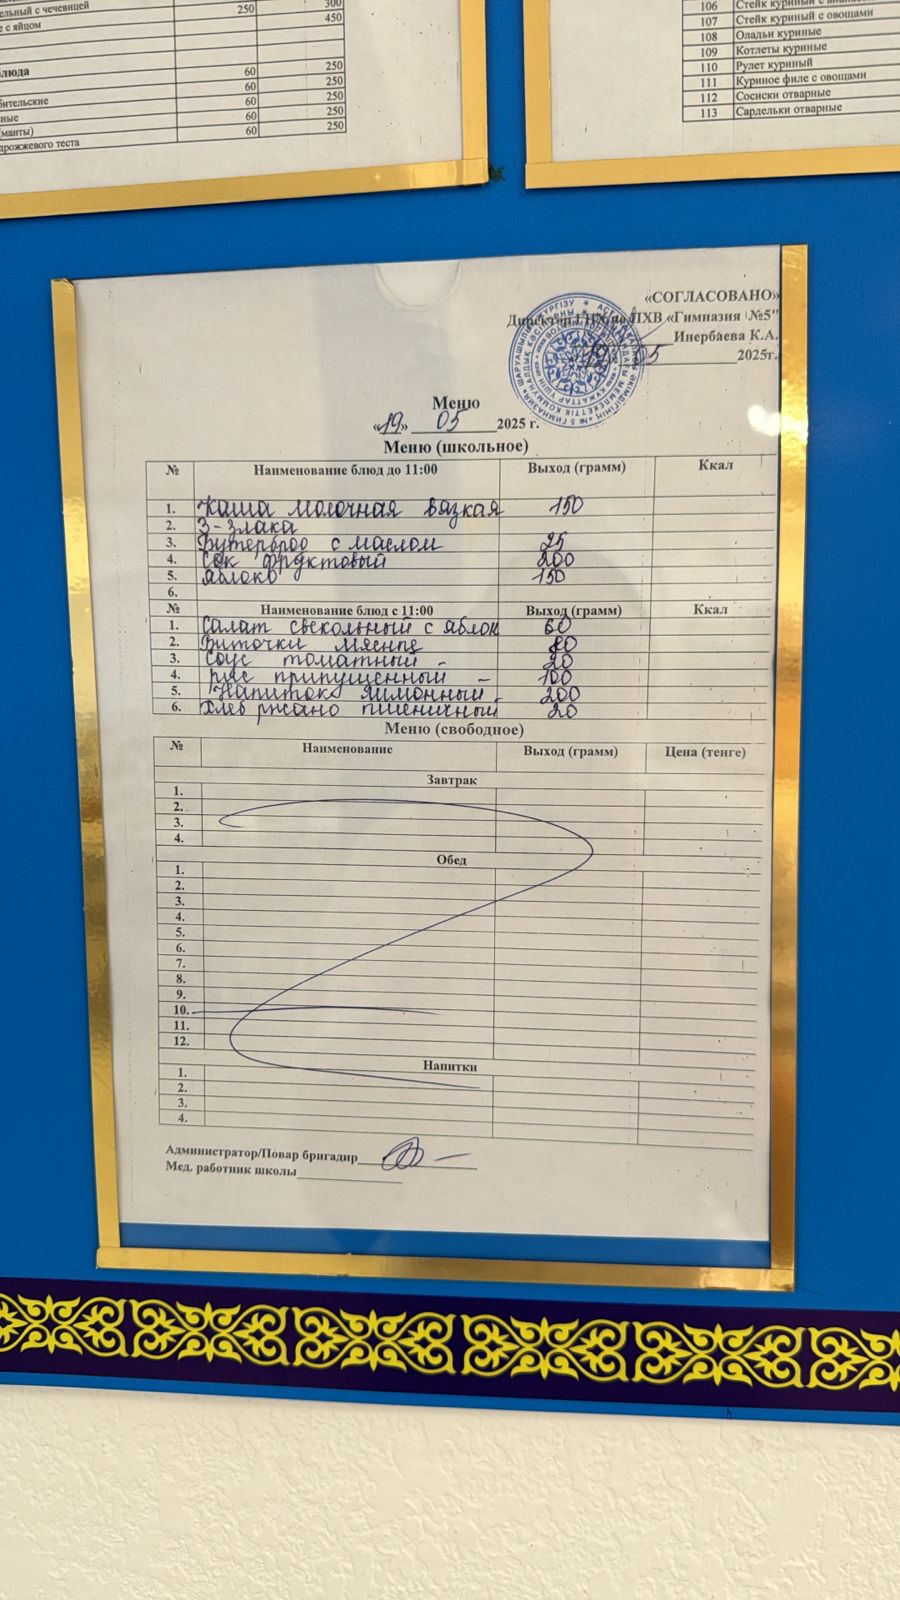 ельный с чечевицей 250 300
е с яйцом 450
блюда
60 250
60 250
60 250
60 250
(манты) 60 250
дрожжевого теста
106 Стейк куриный с
107 Стейк куриный с овощами
108 Оладьи куриные
109 Котлеты куриные
110 Рулет куриный
111 Куриное филе с овощами
112 Сосиски отварные
113 Сардельки отварные
«СОГЛАСОВАНО»
Директор ГКП на ПХВ «Гимназия №5"
Инербаева К.А.
19 05 2025г.
Меню
«19» 05 2025 г.
Меню (школьное)
№ Наименование блюд до 11:00 Выход (грамм) Ккал
1. Каша молочная вязкая 150
2. 3-злака
3. Бутерброд с маслом 25
4. Сок фруктовый 200
5. яблоко 150
6.
№ Наименование блюд с 11:00 Выход (грамм) Ккал
1. Салат свекольный с яблок 60
2. Биточки мясные 80
3. Соус томатный - 20
4. рис припущенный - 100
5. Напиток лимонный 200
6. Хлеб ржано пшеничный 20
Меню (свободное)
№ Наименование Выход (грамм) Цена (тенге)
Завтрак
1.
2.
3.
4.
Обед
1.
2.
3.
4.
5.
6.
7.
8.
9.
10.
11.
12.
Напитки
1.
2.
3.
4.
Администратор/Повар бригадир
Мед. работник школы